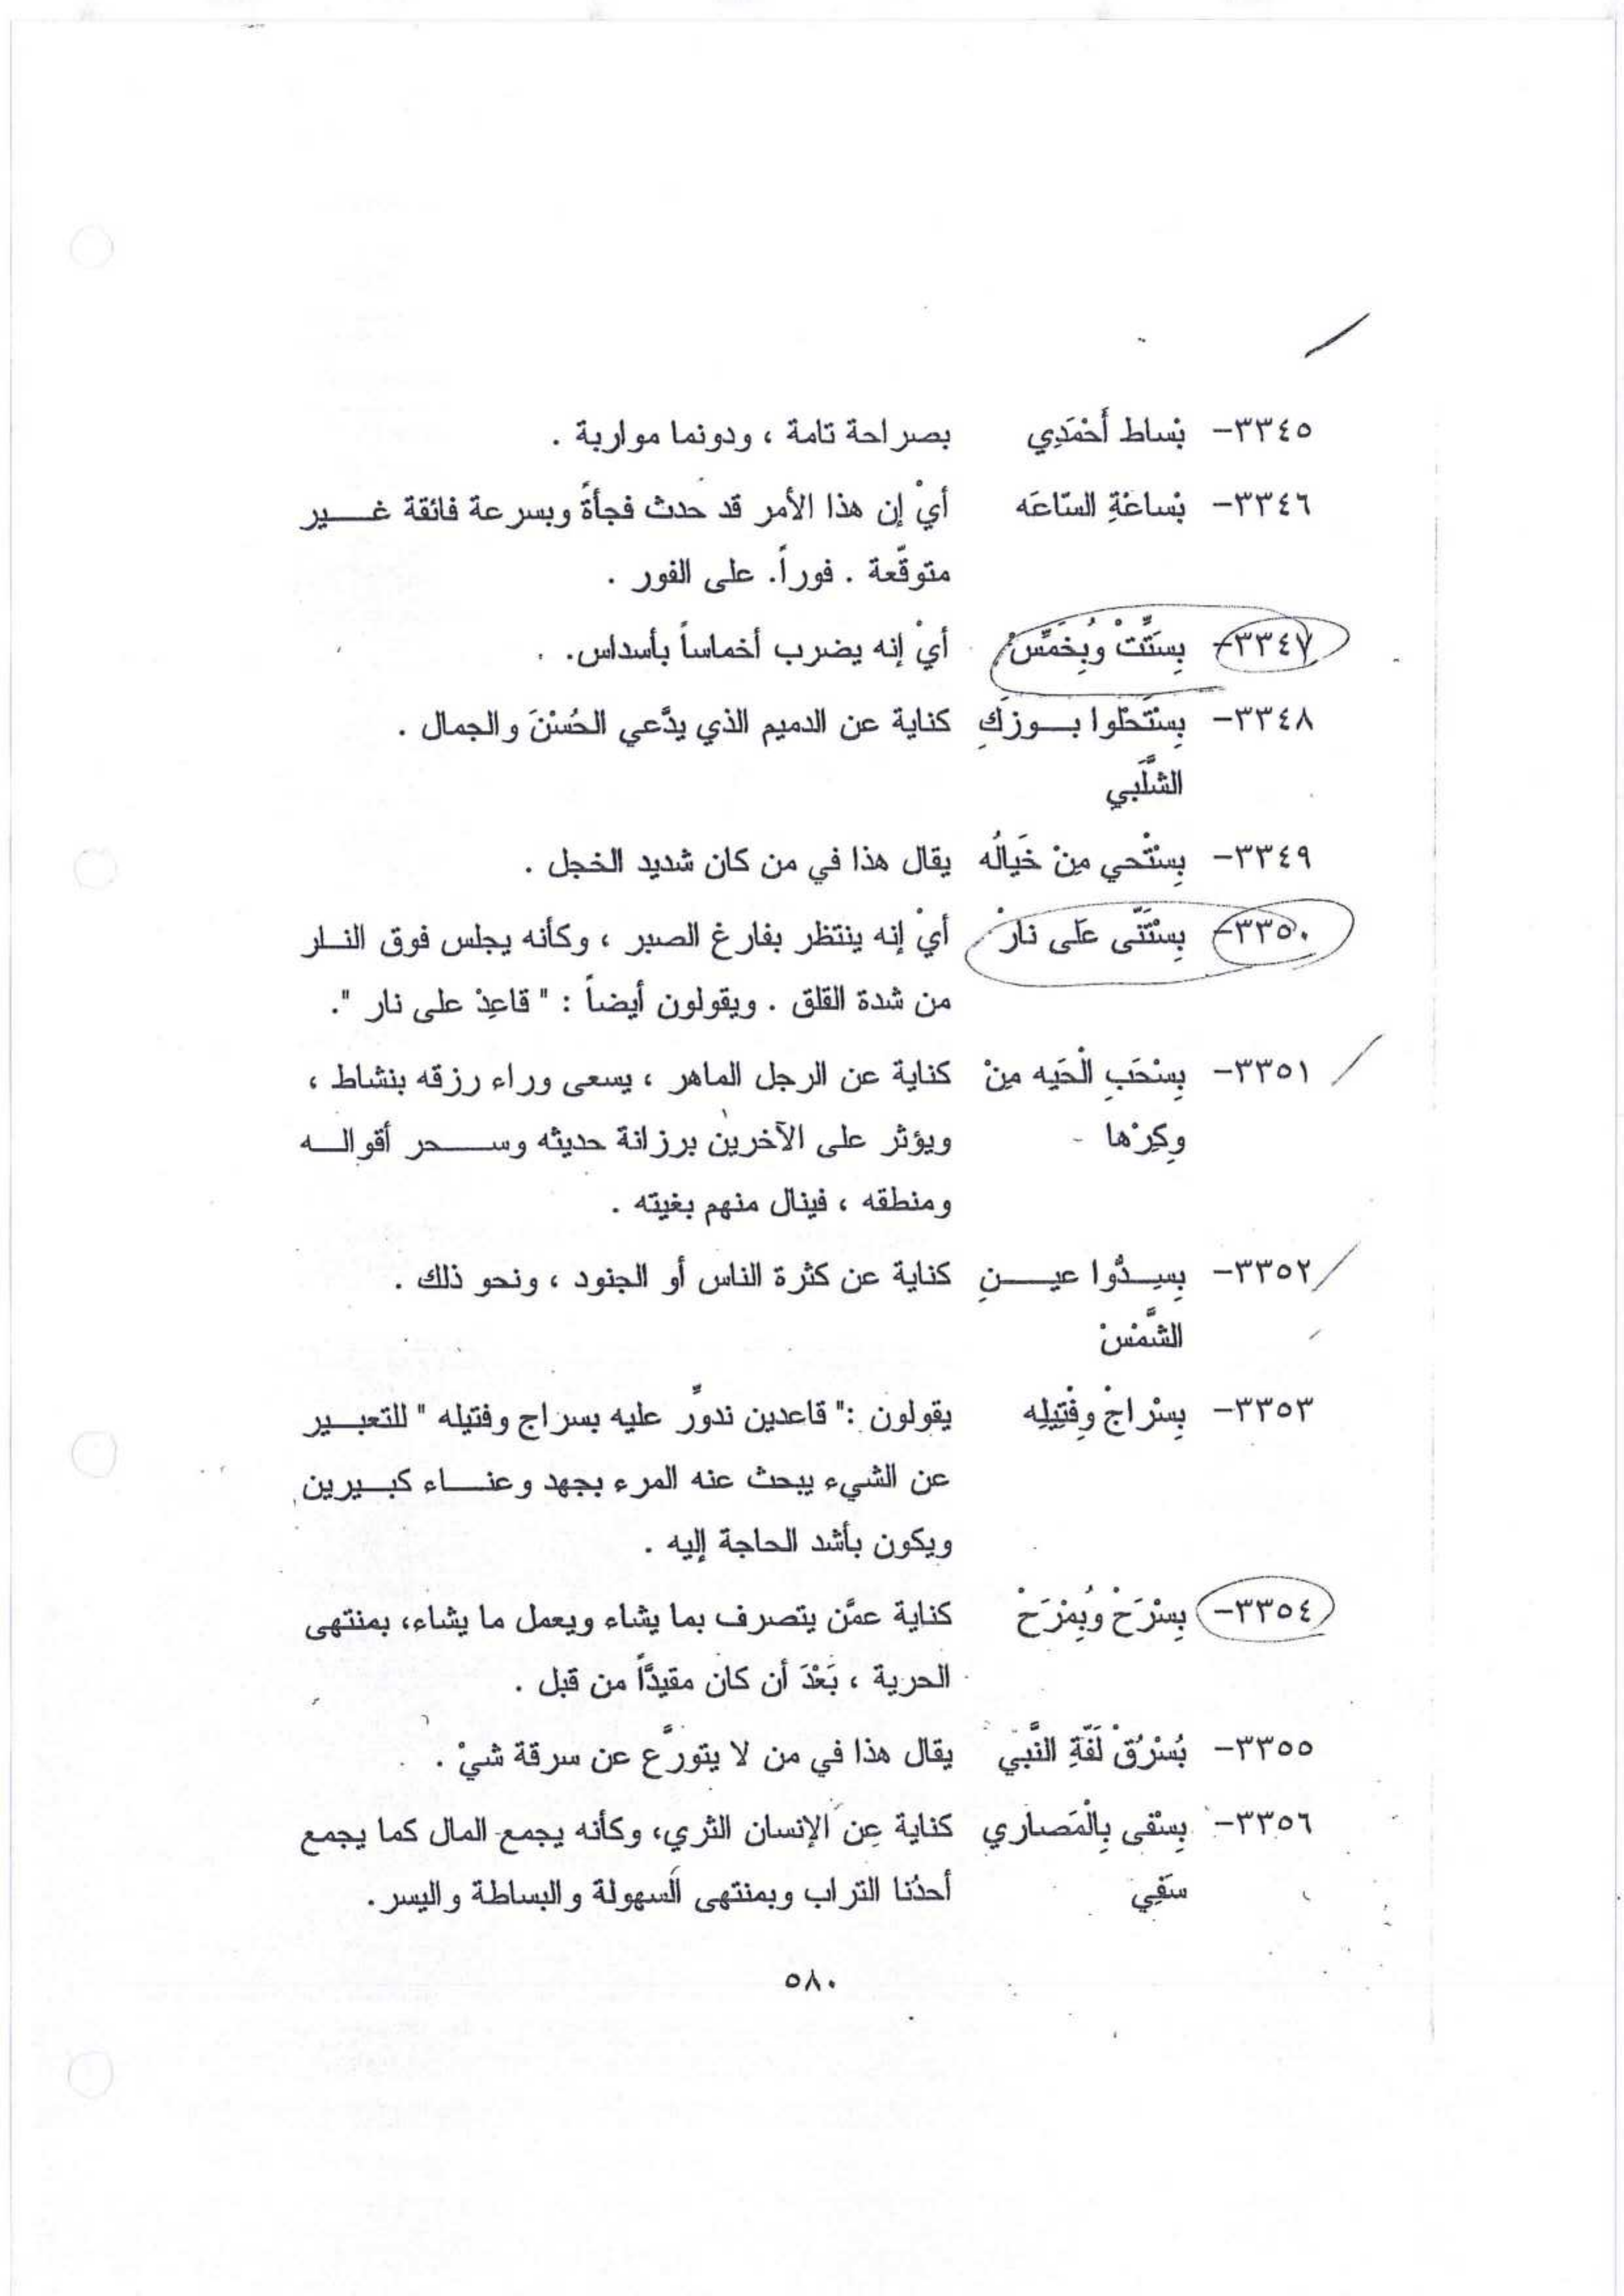 ٣٣٤٥- بْساط أَحْمَدِي بصراحة تامة ، ودونما مواربة .
٣٣٤٦- بْساعَةِ السّاعَه أيْ إن هذا الأمر قد حدث فجأةً وبسرعة فائقة غـــير
متوقّعة . فوراً. على الفور .
٣٣٤٧- بِسَتِّتْ وُبِخَمِّسْ أيْ إنه يضرب أخماساً بأسداس.
٣٣٤٨- بِسْتَحْلوا بـــوزَكِ كناية عن الدميم الذي يدَّعي الحُسْنَ والجمال .
الشَّلَبي
٣٣٤٩- بِسْتْحي مِنْ خَيَالُه يقال هذا في من كان شديد الخجل .
٣٣٥٠- بِسْتَنّى عَلى نارْ أيْ إنه ينتظر بفارغ الصبر ، وكأنه يجلس فوق النـــار
من شدة القلق . ويقولون أيضاً : " قاعِدْ على نار ".
٣٣٥١- بِسْحَبِ الْحَيِه مِنْ كناية عن الرجل الماهر ، يسعى وراء رزقه بنشاط ،
وِكِرْها ويؤثر على الآخرين برزانة حديثه وســـحر أقوالـــه
ومنطقه ، فينال منهم بغيته .
٣٣٥٢- بِسِـدُّوا عيـــنِ كناية عن كثرة الناس أو الجنود ، ونحو ذلك .
الشَّمْسْ
٣٣٥٣- بِسْراجْ وِفْتِيلِه يقولون :" قاعدين ندورِّ عليه بسراج وفتيله " للتعبـــير
عن الشيء يبحث عنه المرء بجهد وعنـــاء كبـــيرين
ويكون بأشد الحاجة إليه .
٣٣٥٤- بِسْرَحْ وُبِمْرَحْ كناية عمَّن يتصرف بما يشاء ويعمل ما يشاء، بمنتهى
الحرية ، بَعْدَ أن كان مقيدَّاً من قبل .
٣٣٥٥- بُسْرُقْ لَفّةِ النَّبي يقال هذا في من لا يتورَّع عن سرقة شيْ .
٣٣٥٦- بِسْفى بِالْمَصاري كناية عن الإنسان الثري، وكأنه يجمع المال كما يجمع
سَفِي أحدُنا التراب وبمنتهى السهولة والبساطة واليسر.
٥٨٠